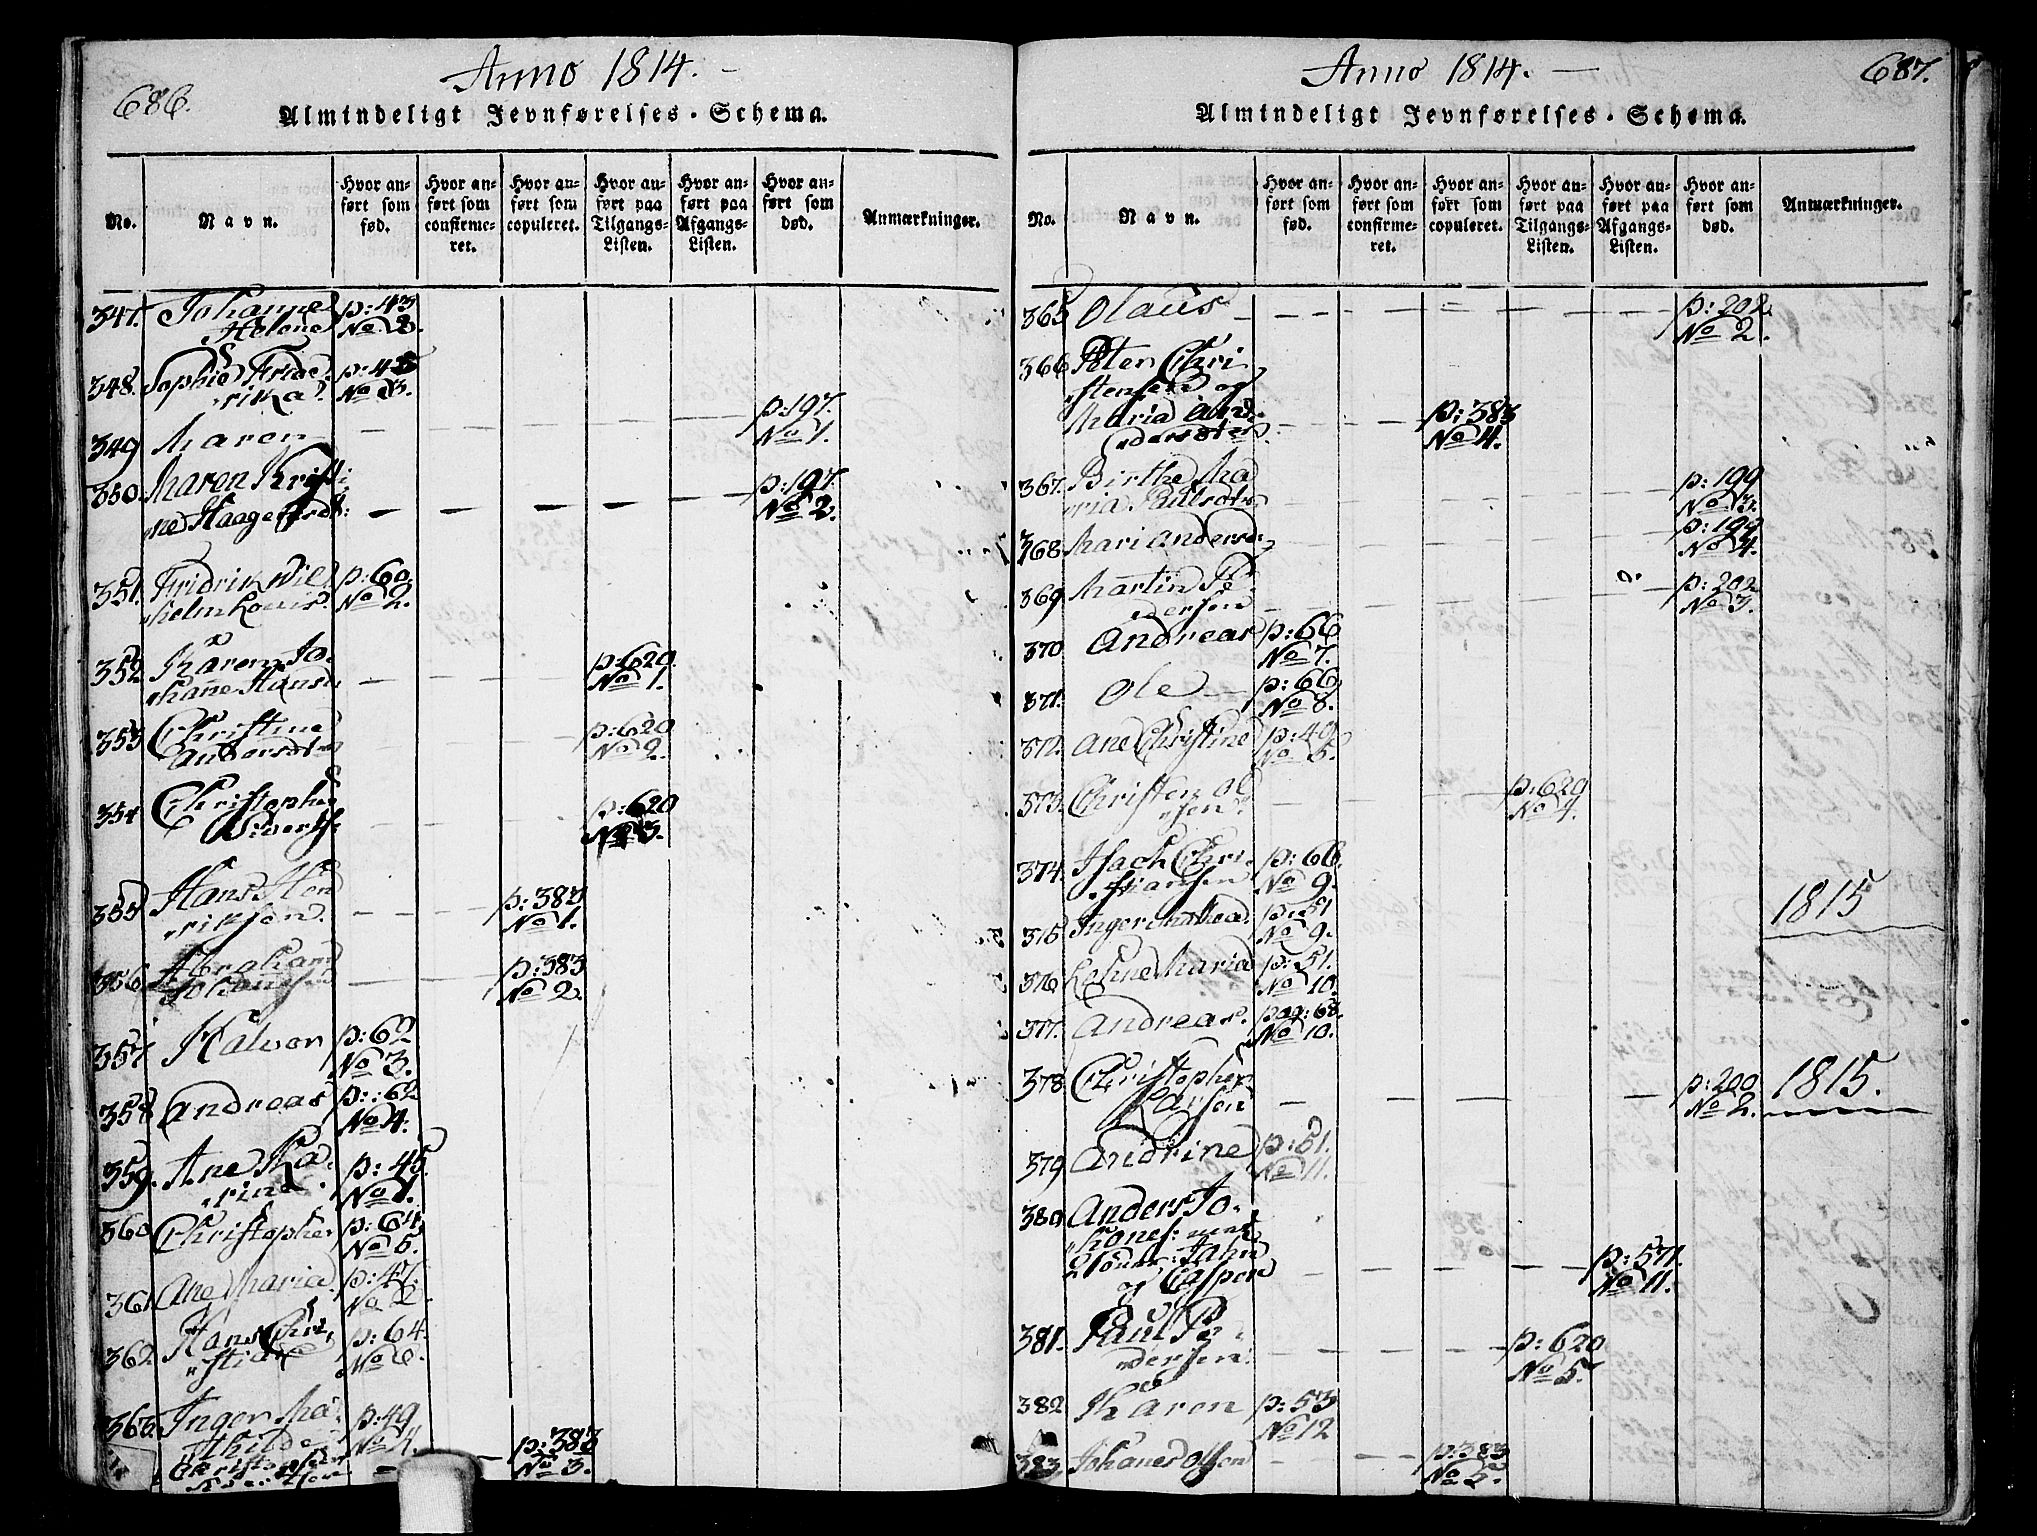 686.
Anno 1814.
Almindeligt Jevnførelses-Schema.
No.
Navn.
Hvor an-
ført som
fød.
Hvor an-
ført som
confirme-
ret.
Hvor an-
ført som
copuleret.
Hvor an-
ført paa
Tilgangs-
Listen.
Hvor an-
ført paa
Afgangs-
Listen.
Hvor an-
ført som
død.
Anmærkninger.
347. Johanne p: 43
Helene No 2.
348. Sophie Fride p: 45
rika No 3.
349 Maren p: 197.
No 1.
350. Maren Kristi p: 197.
ne Haagensdt: No 2.
351. Fridrik Wil p: 60.
helm Louis. No 2.
352. Karen Jo- p: 620.
hane Hansd No 1.
353 Christine p: 620
Andersdter No 2.
354 Christopher p: 620
Siverts: No 3.
355 Hans Hen p: 383
riksen. No 1.
356 Abraham p: 383
Johansen No 2.
357 Halvor p: 62
No 3.
358 Andreas p: 62
No 4.
359. Ane Ka- p: 45.
rine. No 1.
360 Christopher p: 64
No 5.
361 Ane Maria p: 47.
No 2.
362 Hans Chri p: 64.
stian No 6.
363 Inger Ma- p: 49
thilde No 4.
Christopher p: 383
No 3.
687.
Anno 1814.
Almindeligt Jevnførelses-Schema.
No.
Navn.
Hvor an-
ført som
fød.
Hvor an-
ført som
confirme-
ret.
Hvor an-
ført som
copuleret.
Hvor an-
ført paa
Tilgangs-
Listen.
Hvor an-
ført paa
Afgangs-
Listen.
Hvor an-
ført som
død.
Anmærkninger.
365 Olaus p: 202.
No 2.
366 Peter Chri
stensen og
Maria An p: 383
dersdter No 4.
367. Birthe Ma p: 199
ria Paulsdtr No 3.
368. Mari Andersd p: 199
No 4.
369 Martin Pe p: 202
dersen No 3.
370 Andreas p: 66
No 7.
371. Ole p: 66
No 8.
372. Ane Christine p: 49
No 8.
373. Christen Ol p: 620
sen No 4.
374. Isach Chri- p: 66.
stiansen No 9.
375 Inger Mathea. p: 51 1815
No 9.
376 Lohne Maria p: 51.
No 10.
377. Andreas. pag: 68.
No 10.
378 Christopher p: 200 1815.
Larsen No 2.
379 Andrine p: 51.
No 11.
380 Anders Jo-
hanes: med
2 Sønner: Jahn p: 571.
og Casper No 11.
381. Paul Pe p: 620
dersen. No 5.
382 Karen p: 53
No 12
383. Johanes Olsen p: 383
No 5.